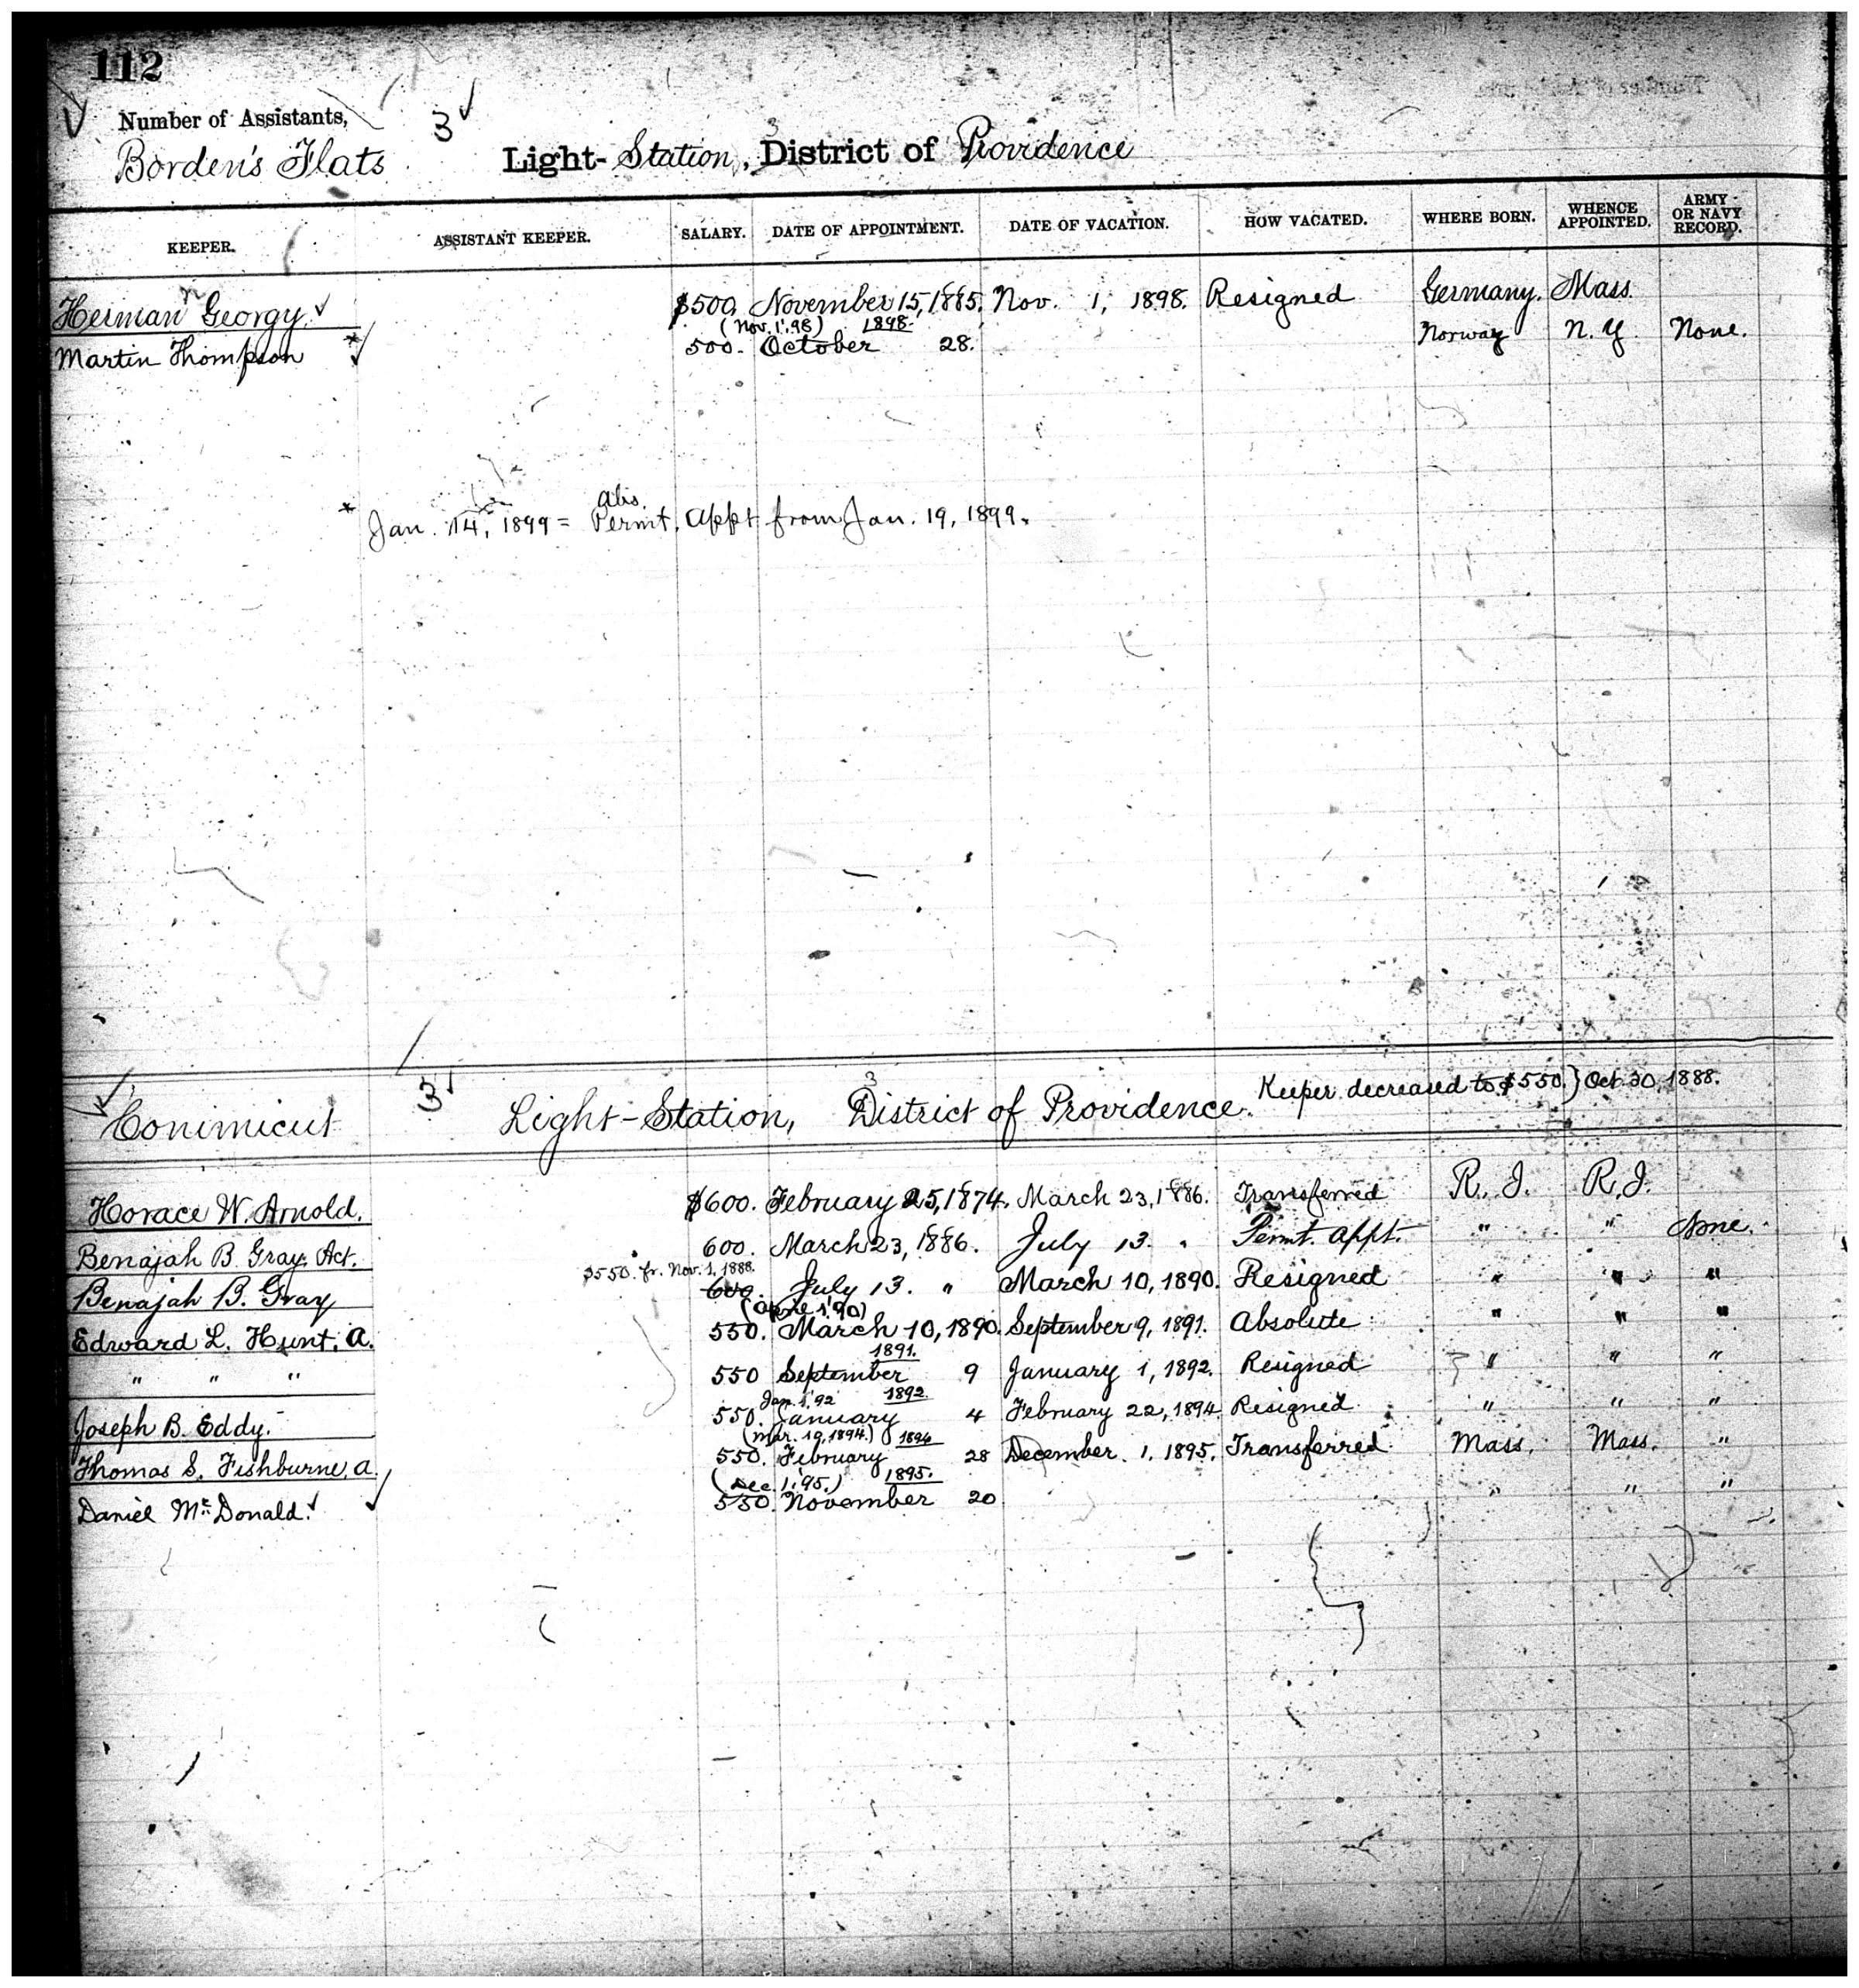 112
Number of Assistants, 3
Borden's Flats Light-Station, District of Providence
3
KEEPER. ASSISTANT KEEPER. SALARY. DATE OF APPOINTMENT. DATE OF VACATION. HOW VACATED. WHERE BORN. WHENCE APPOINTED. ARMY OR NAVY RECORD.
Herman Georgy. $500. November 15, 1885. Nov. 1, 1898. Resigned Germany. Mass.
(Nov. 1, '98) 1898.
Martin Thompson * 500. October 28. Norway N. Y. None.
Abs.
* Jan. 14, 1899 = Permt. Appt from Jan. 19, 1899.
3
Conimicut 3 Light-Station, District of Providence. Keeper decreased to $550. } Oct. 30, 1888.
Horace W. Arnold. $600. February 25, 1874. March 23, 1886. Transferred R. I. R. I.
Benajah B. Gray. Act. 600. March 23, 1886. July 13. " Permt. Appt. " " None.
$550. fr. Nov. 1, 1888.
Benajah B. Gray 600. July 13. " March 10, 1890. Resigned " " "
(April 1, '90)
Edward L. Hunt. A. 550. March 10, 1890. September 9, 1891. Absolute " " "
1891.
" " " 550 September 9 January 1, 1892. Resigned " " "
Jan. 1, '92 1892.
Joseph B. Eddy. 550. January 4 February 22, 1894. Resigned " " "
(Mar. 19, 1894.) 1894
Thomas S. Fishburne, A. 550. February 28 December. 1. 1895. Transferred Mass. Mass. "
(Dec. 1, '95.) 1895.
Daniel McDonald. 550. November 20 " " "